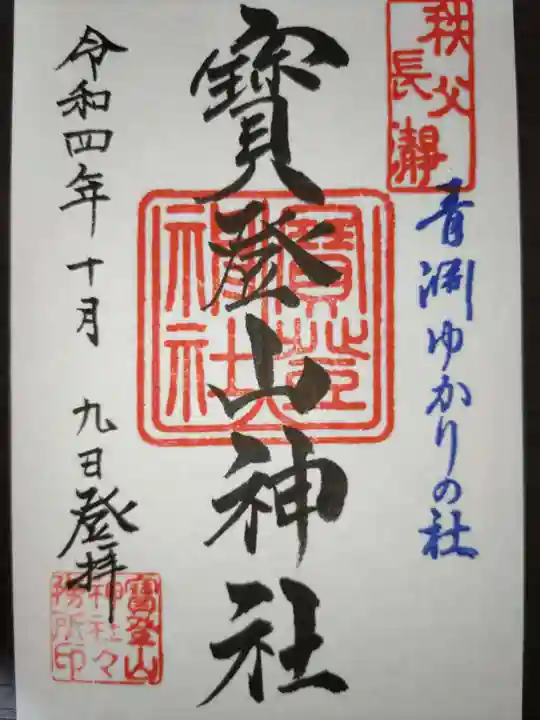 秩父
長瀞
青淵ゆかりの社
寶登山神社
寶登
神社
令和四年十月九日登拝
寶登山
神社々
務所印